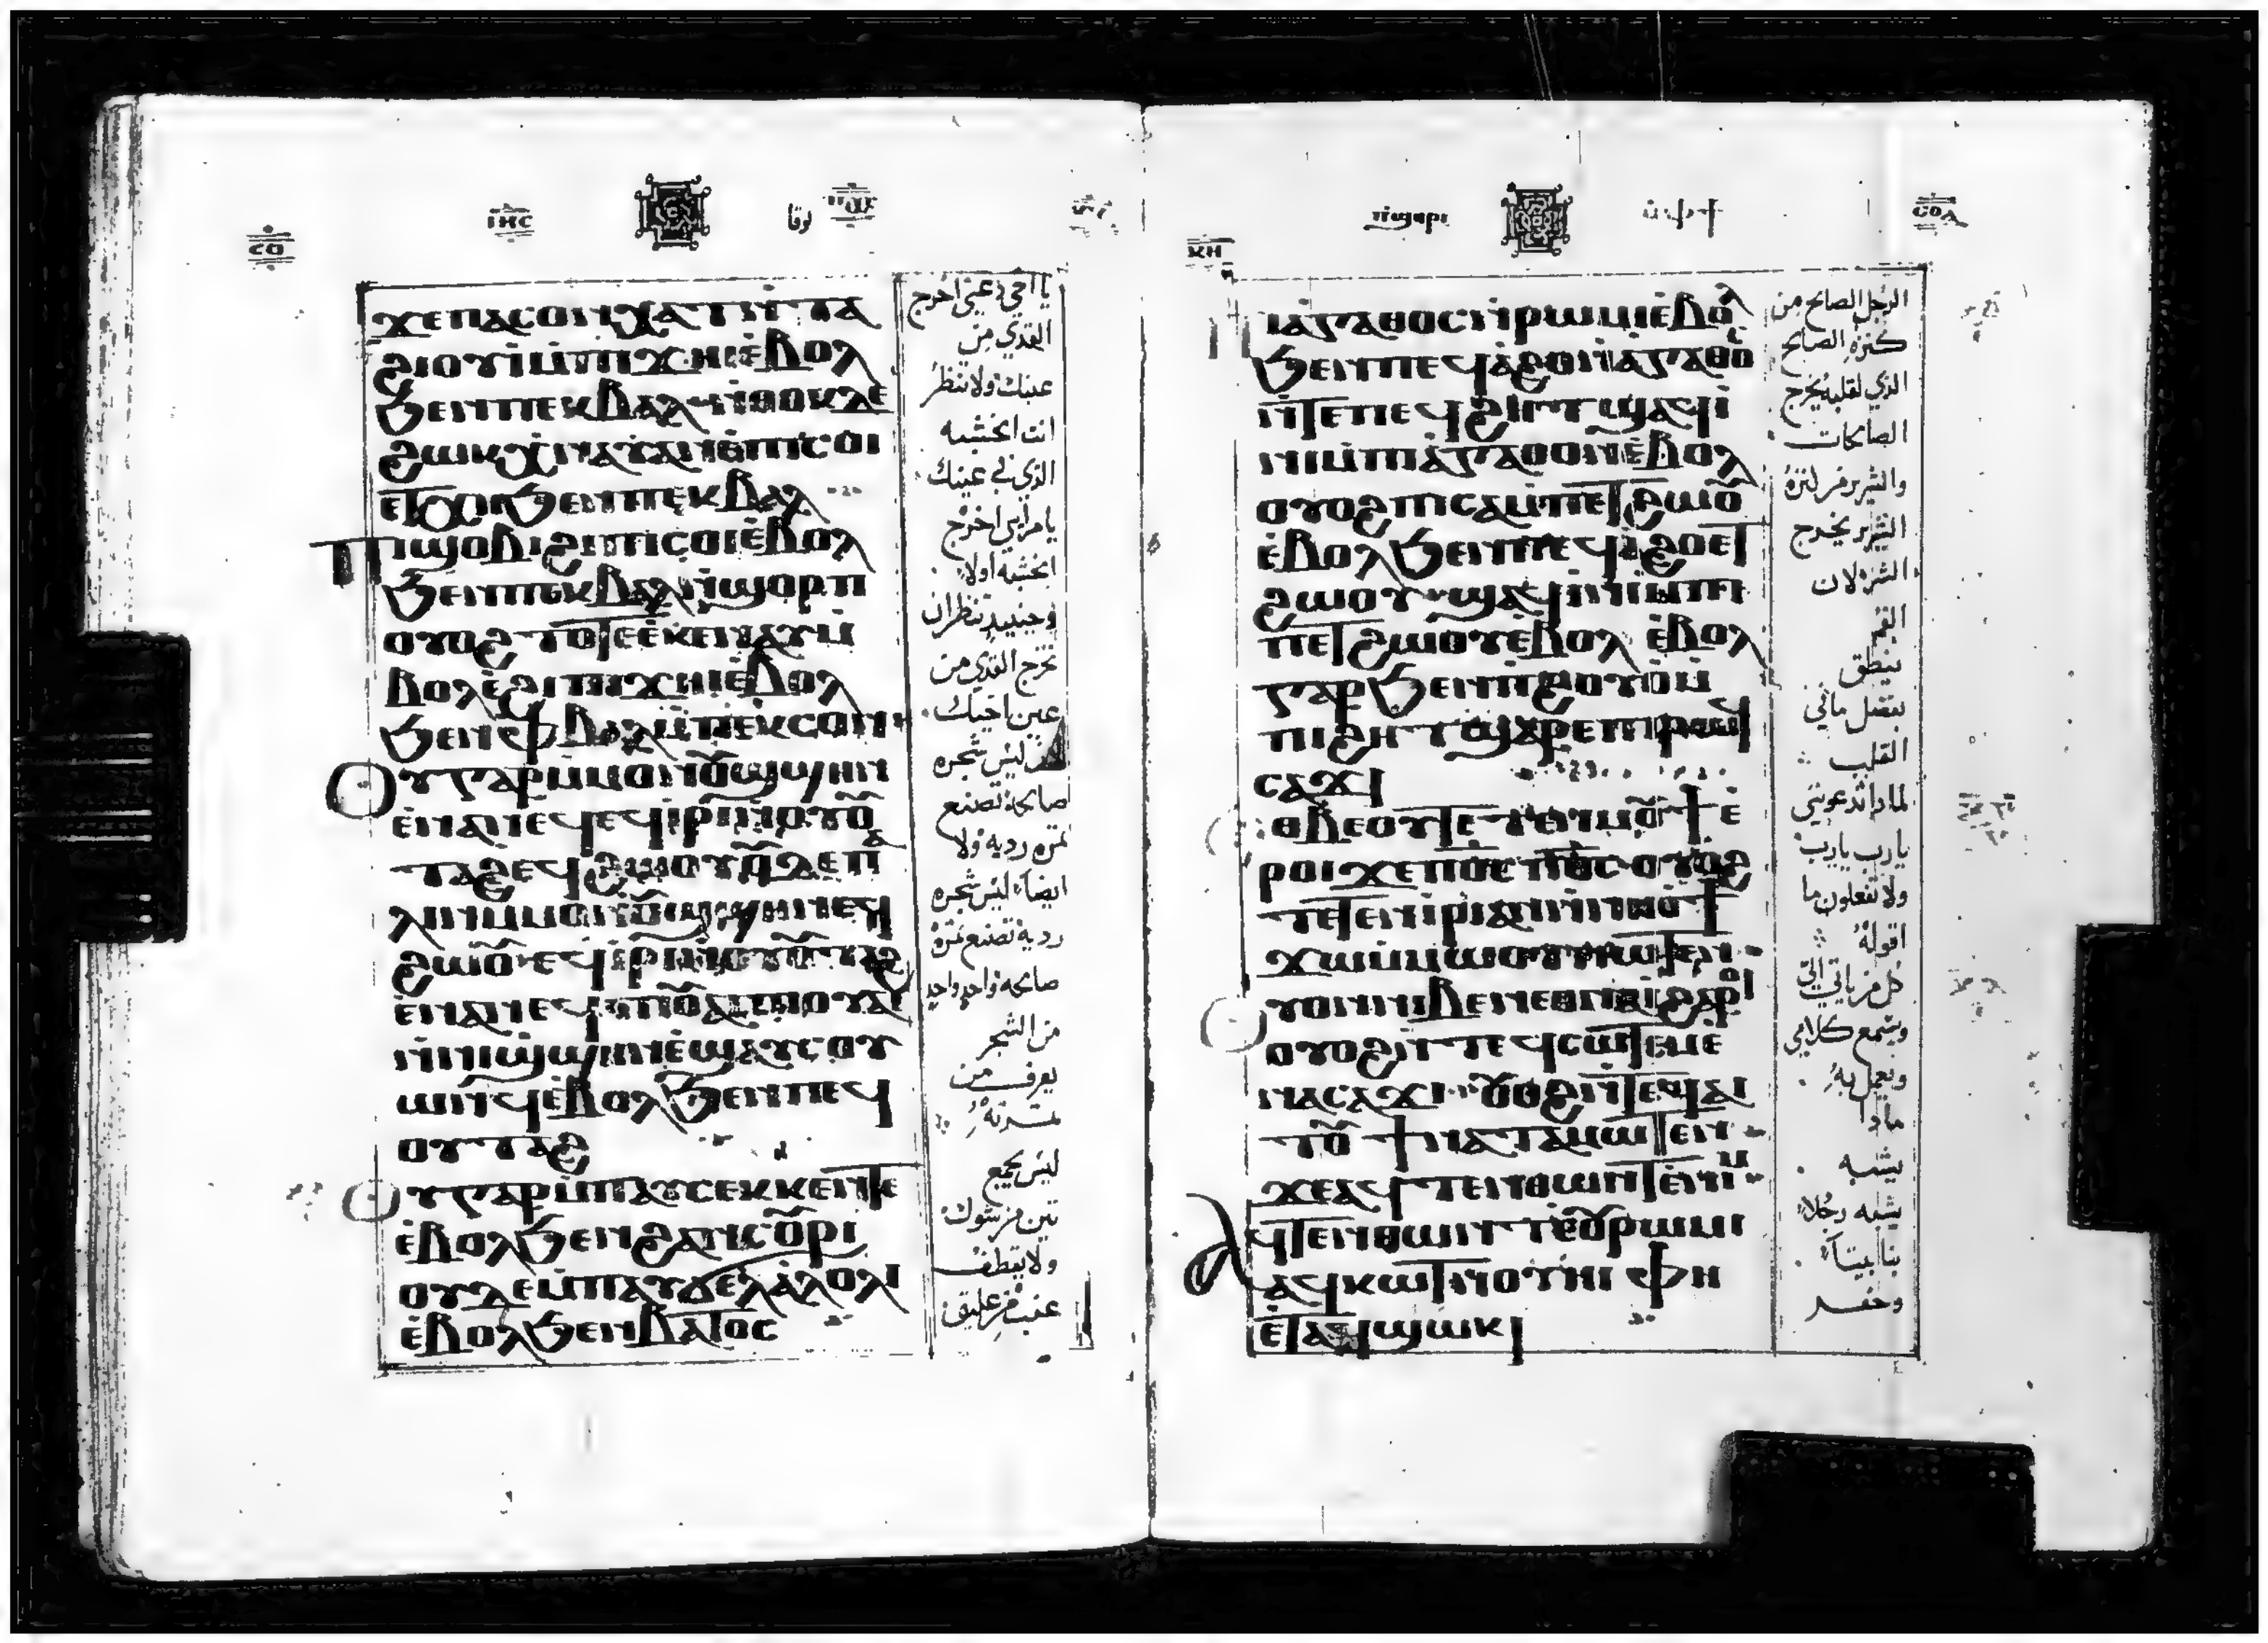 ⲓⲏⲥ
لوقا
ⲥⲟ
ϫⲉ ⲡⲁⲥⲟⲛ ⲭⲁⲧ ⲛ̀ⲧⲁ
ϩⲓⲟⲩⲓ̀ ⲙ̀ⲡⲓϫⲏⲓ ⲉ̀ⲃⲟⲗ
ϧⲉⲛ ⲡⲉⲕⲃⲁⲗ ⲛ̀ⲑⲟⲕ ⲇⲉ
ϩⲱⲕ ⲭ̀ⲛⲁⲩ ⲁⲛ ⲉ̀ⲡⲓⲥⲟⲓ
ⲉⲧⲭⲏ ϧⲉⲛ ⲡⲉⲕⲃⲁⲗ
ⲡⲓϣⲟⲃⲓ ϩⲓ ⲡⲓⲥⲟⲓ ⲉ̀ⲃⲟⲗ
ϧⲉⲛ ⲡⲉⲕⲃⲁⲗ ⲛ̀ϣⲟⲣⲡ
ⲟⲩⲟϩ ⲧⲟⲧⲉ ⲉ̀ⲕⲉⲛⲁⲩ ⲙ̀
ⲃⲟⲗ ⲉ̀ϩⲓ ⲡⲓϫⲏⲓ ⲉ̀ⲃⲟⲗ
ϧⲉⲛ ⲫⲃⲁⲗ ⲙ̀ⲡⲉⲕⲥⲟⲛ
ⲟⲩ ⲅⲁⲣ ⲙ̀ⲙⲟⲛ ⲟ̅ϣϣⲏⲛ
ⲉ̀ⲛⲁⲛⲉϥ ⲉϥⲓ̀ⲣⲓ ⲛ̀ⲟⲩⲟ̅
ⲧⲁϩ ⲉϥϩⲱⲟⲩ ⲟ̅ⲇⲉ ⲡⲁ
ⲗⲓⲛ ⲙ̀ⲙⲟⲛ ⲟ̅ϣϣⲏⲛ ⲉϥ
ϩⲱⲟ̅ ⲉϥⲓ̀ⲣⲓ ⲛ̀ⲟⲩⲟ̅ⲧⲁϩ
ⲉ̀ⲛⲁⲛⲉϥ ⲡⲟ̅ⲁⲓ ⲡⲟⲩⲁⲓ
ⲛ̀ⲛⲓϣϣⲏⲛ ⲉ̀ϣⲁⲩⲥⲟⲩ
ⲱⲛϥ ⲉ̀ⲃⲟⲗ ϧⲉⲛ ⲡⲉϥ
ⲟⲩⲧⲁϩ
ⲟⲩ ⲅⲁⲣ ⲙ̀ⲡⲁⲩⲥⲉⲕ ⲕⲉⲛⲧⲉ
ⲉ̀ⲃⲟⲗ ϧⲉⲛ ϩⲁⲛⲥⲟ̅ⲣⲓ
ⲟⲩⲇⲉ ⲙ̀ⲡⲁⲩϭⲉⲗ ⲁ̀ⲗⲟⲗⲓ
ⲉ̀ⲃⲟⲗ ϧⲉⲛ ⲃⲁⲧⲟⲥ
يا اخي دعني اخرج
القذي من
عينك ولا تنظر
انت الخشبه
الذي في عينك
يا مرايي اخرج
الخشبه اولا
وحينيد تنظر ان
تخرج القذي من
عين اخيك
ليس شجره
صالحة تصنع
ثمره رديه ولا
ايضا ليس شجره
ردية تصنع ثمرة
صالحه واحد واحد
من الشجر
يعرف من
ثمرته
ليس يجمع
تين من شوك
ولا يقطف
عنب من عليق
ⲡ̀ϣⲏⲣⲓ
ⲙ̀ⲫϯ
ⲥⲟⲁ
ⲕⲏ
ⲡⲓⲁ̀ⲅⲁⲑⲟⲥ ⲛ̀ⲣⲱⲙⲓ ⲉ̀ⲃⲟⲗ
ϧⲉⲛ ⲡⲉϥⲁ̀ϩⲟ ⲛ̀ⲁ̀ⲅⲁⲑⲟ̅
ⲛ̀ⲧⲉ ⲡⲉϥϩⲏⲧ ϣⲁϥⲓ̀
ⲛⲓ ⲙ̀ⲡⲓⲁ̀ⲅⲁⲑⲟⲛ ⲉ̀ⲃⲟⲗ
ⲟⲩⲟϩ ⲡⲓⲥⲁⲙⲡⲉⲧϩⲱⲟ̅
ⲉ̀ⲃⲟⲗ ϧⲉⲛ ⲡⲉϥⲁ̀ϩⲟ ⲉⲧ
ϩⲱⲟⲩ ϣⲁϥⲓ̀ⲛⲓ ⲙ̀ⲡⲓ
ⲡⲉⲧϩⲱⲟⲩ ⲉ̀ⲃⲟⲗ ⲉ̀ⲃⲟⲗ
ⲅⲁⲣ ϧⲉⲛ ⲡ̀ϩⲟⲩⲟ̀ ⲙ̀
ⲡⲓϩⲏⲧ ϣⲁⲣⲉ ⲡⲓⲣⲱϥ
ⲥⲁϫⲓ
ⲉⲑⲃⲉ ⲟⲩ ⲧⲉⲧⲉⲛⲙⲟ̅ϯ ⲉ̀
ⲣⲟⲓ ϫⲉ ⲡⲟ̅ⲥ ⲡⲟ̅ⲥ ⲟⲩⲟϩ
ⲧⲉⲧⲉⲛⲓ̀ⲣⲓ ⲁⲛ ⲛ̀ⲛⲏ ⲉϯ
ϫⲱ ⲙ̀ⲙⲱⲟⲩ ⲛⲱⲧⲉⲛ
ⲟⲩⲟⲛ ⲛⲓⲃⲉⲛ ⲉⲑⲛⲏⲟⲩ ϩⲁⲣⲟⲓ
ⲟⲩⲟϩ ⲛ̀ⲧⲉϥⲥⲱⲧⲉⲙ ⲉ̀
ⲛⲁⲥⲁϫⲓ ⲟ̅ⲟϩ ⲛ̀ⲧⲉϥⲁⲓ
ⲧⲟ̅ ϯⲛⲁⲧⲁⲙⲱⲧⲉⲛ
ϫⲉ ⲁϥⲧⲉⲛⲑⲱⲛⲧ ⲉ̀ⲛⲓⲙ
ⲁϥⲧⲉⲛⲑⲱⲛⲧ ⲉ̀ⲟ̅ⲣⲱⲙⲓ
ⲁϥⲕⲱⲧ ⲛ̀ⲟⲩⲏⲓ ⲫⲏ
ⲉ̀ⲧⲁϥϣⲱⲕ
الرجل الصالح من
كنزه الصالح
الذي لقلبه يخرج
الصالحات
والشرير من كنزه
الشرير يخرج
الشر لان
الفم
ينطق
بفضل ما في
القلب
لماذا تدعونني
يارب يارب
ولا تفعلون ما
اقوله
كل من ياتي الي
ويسمع كلامي
ويعمل به
ماذا
يشبه
يشبه رجلا
بنا بيتا
وحفر